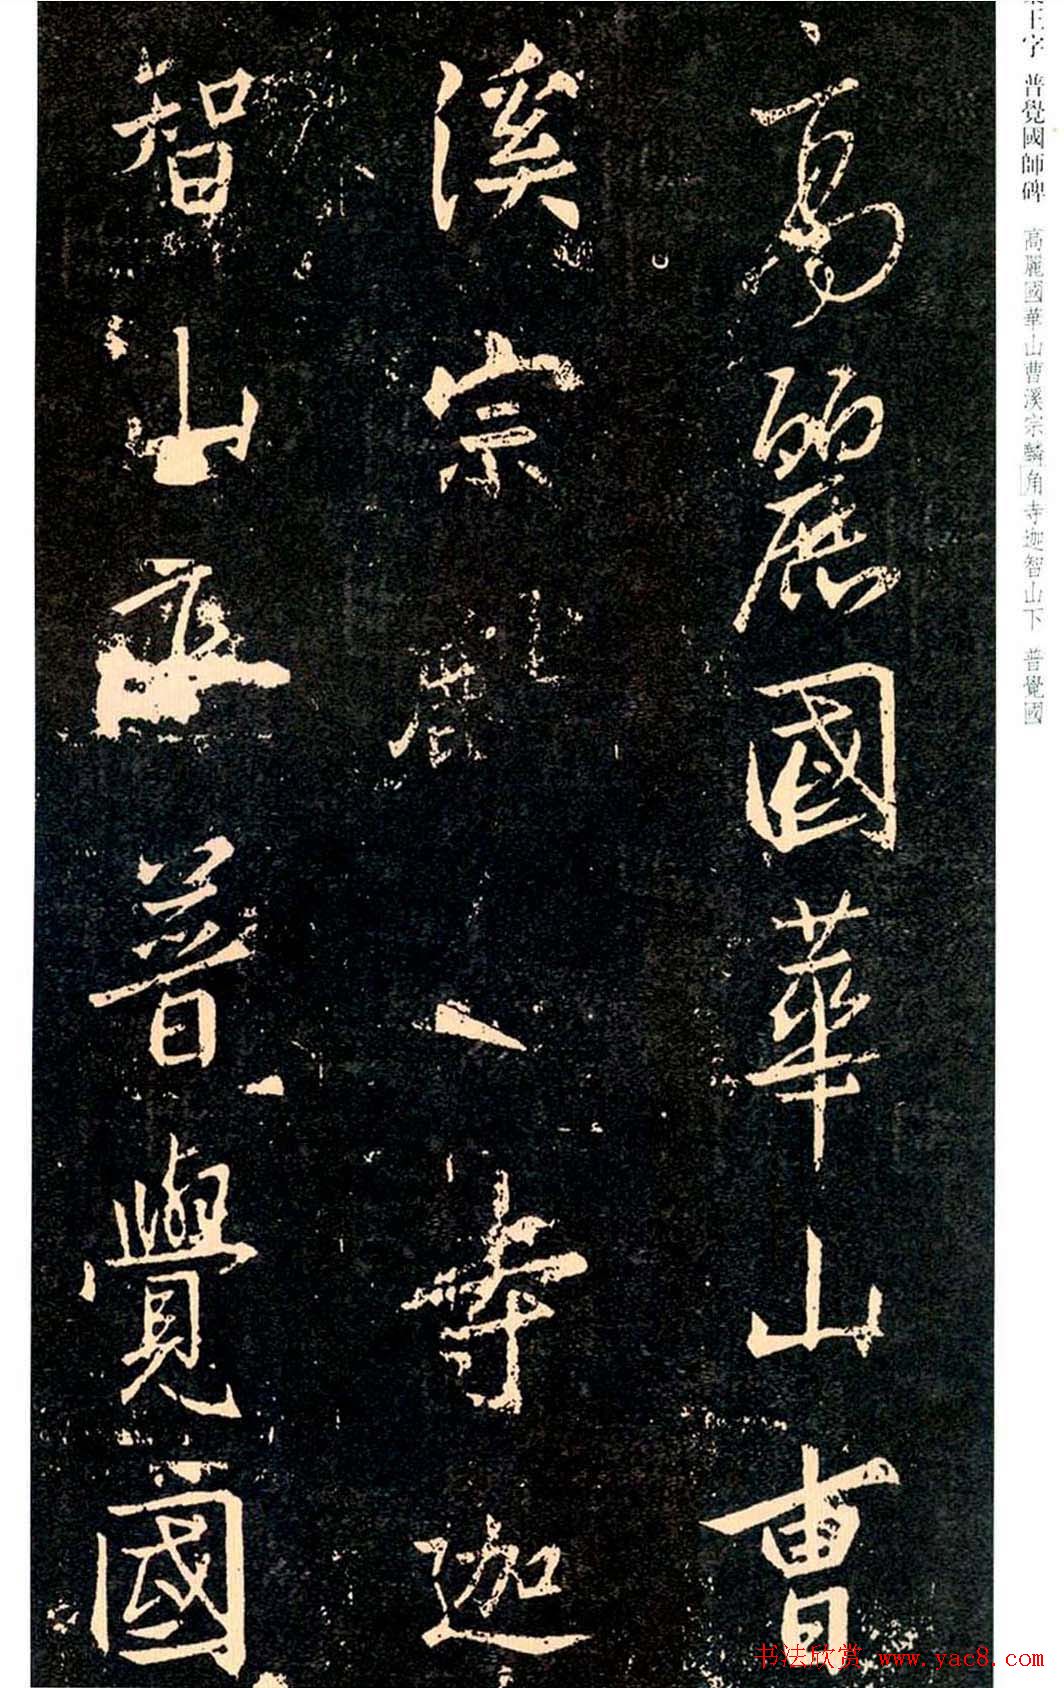 王字 普覺國師碑 高麗國華山曹溪宗麟角寺迦智山下 普覺國
高麗國華山曹
溪宗 寺迦
智山下普覺國
书法欣赏 www.yac8.com